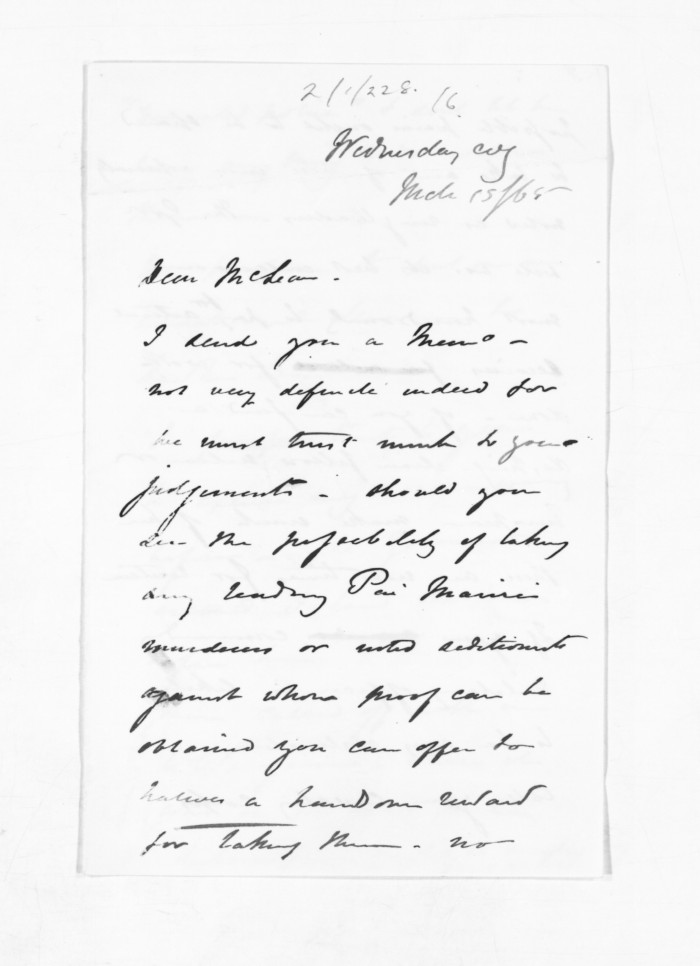 2/1/228. /6
Wednesday evg
Mch 15/65
Dear McLean -
I send you a Memo -
not very definite indeed for
we must trust much to your
judgements - should you
see the possibility of taking
any leading Pai Marire
murderers or noted seditionists
against whom proof can be
obtained you can offer to
natives a handsome reward
for taking them - no